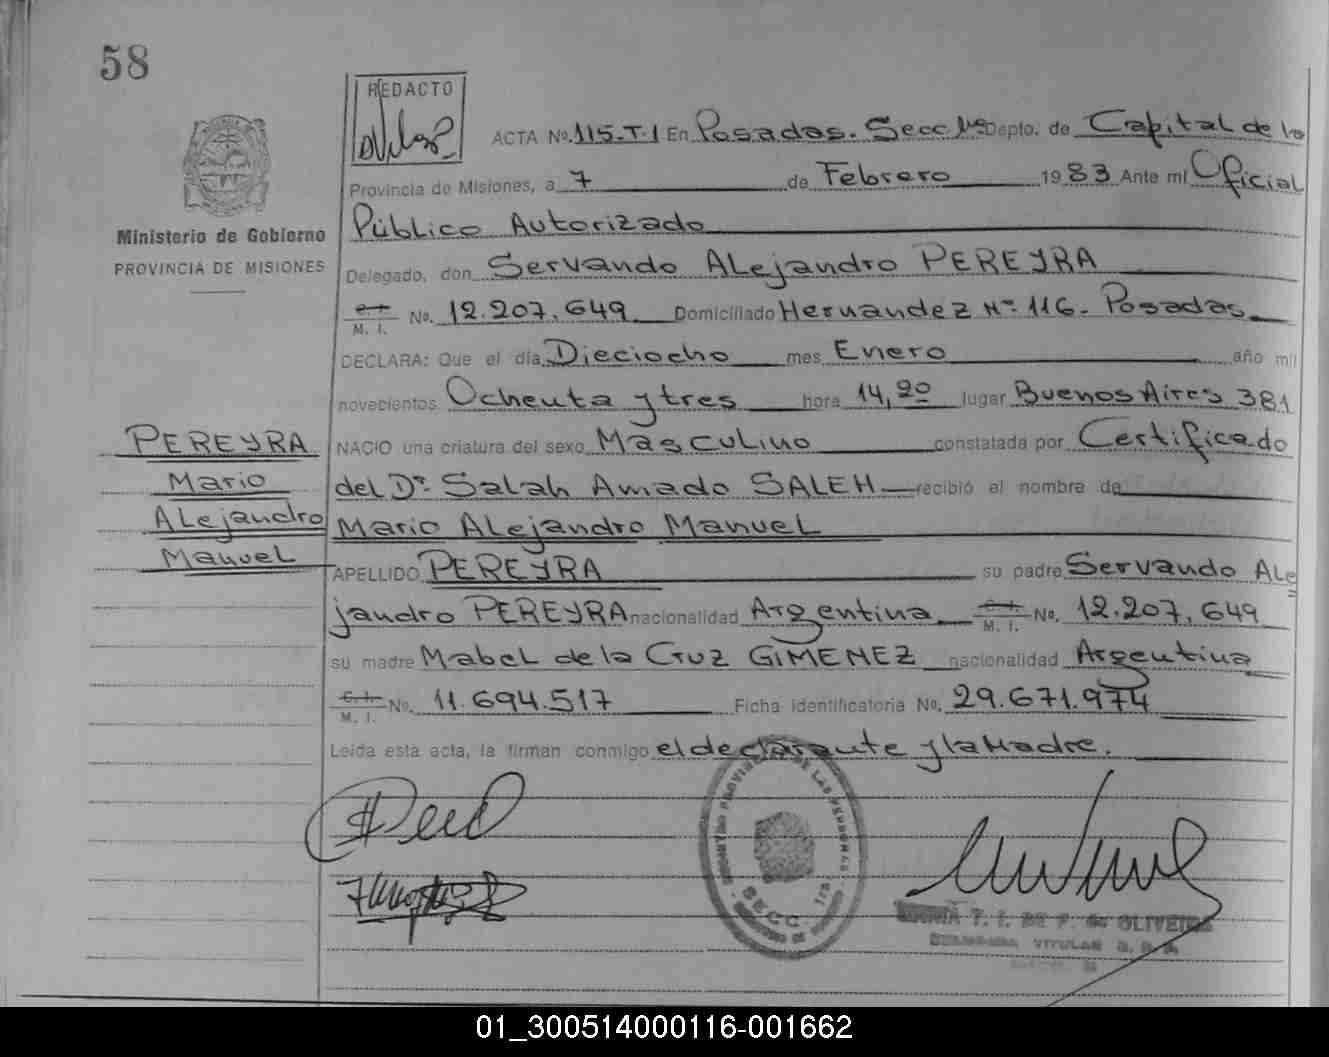 58
REDACTO
ACTA No. 115-T-1 En Posadas. Secc 1ra Depto. de Capital de la
Provincia de Misiones, a 7 de Febrero 1983 Ante mi Oficial
Público Autorizado
Ministerio de Gobierno
PROVINCIA DE MISIONES
Delegado, don Servando ALejandro PEREYRA
M. I. No. 12.207.649 Domiciliado Hernandez Nº 116. Posadas
DECLARA: Que el día Dieciocho mes Enero año mil
novecientos Ochenta y tres hora 14,20 lugar Buenos Aires 381
NACIO una criatura del sexo Masculino constatada por Certificado
del Dr. Salah Amado SALEH recibió el nombre de
Mario ALejandro ManueL
PEREYRA
Mario
ALejandro
ManueL
APELLIDO PEREYRA su padre Servando ALe
jandro PEREYRA nacionalidad Argentina C.I. M. I. No. 12.207.649
su madre MabeL de la Cruz GIMENEZ nacionalidad Argentina
C.I. M. I. No. 11.694.517 Ficha identificatoria No. 29.671.974
Leída esta acta, la firman conmigo el declarante y la Madre.
SECC. 1ra.
T. I. DE F. de OLIVEIRA
TITULAR
01_300514000116-001662